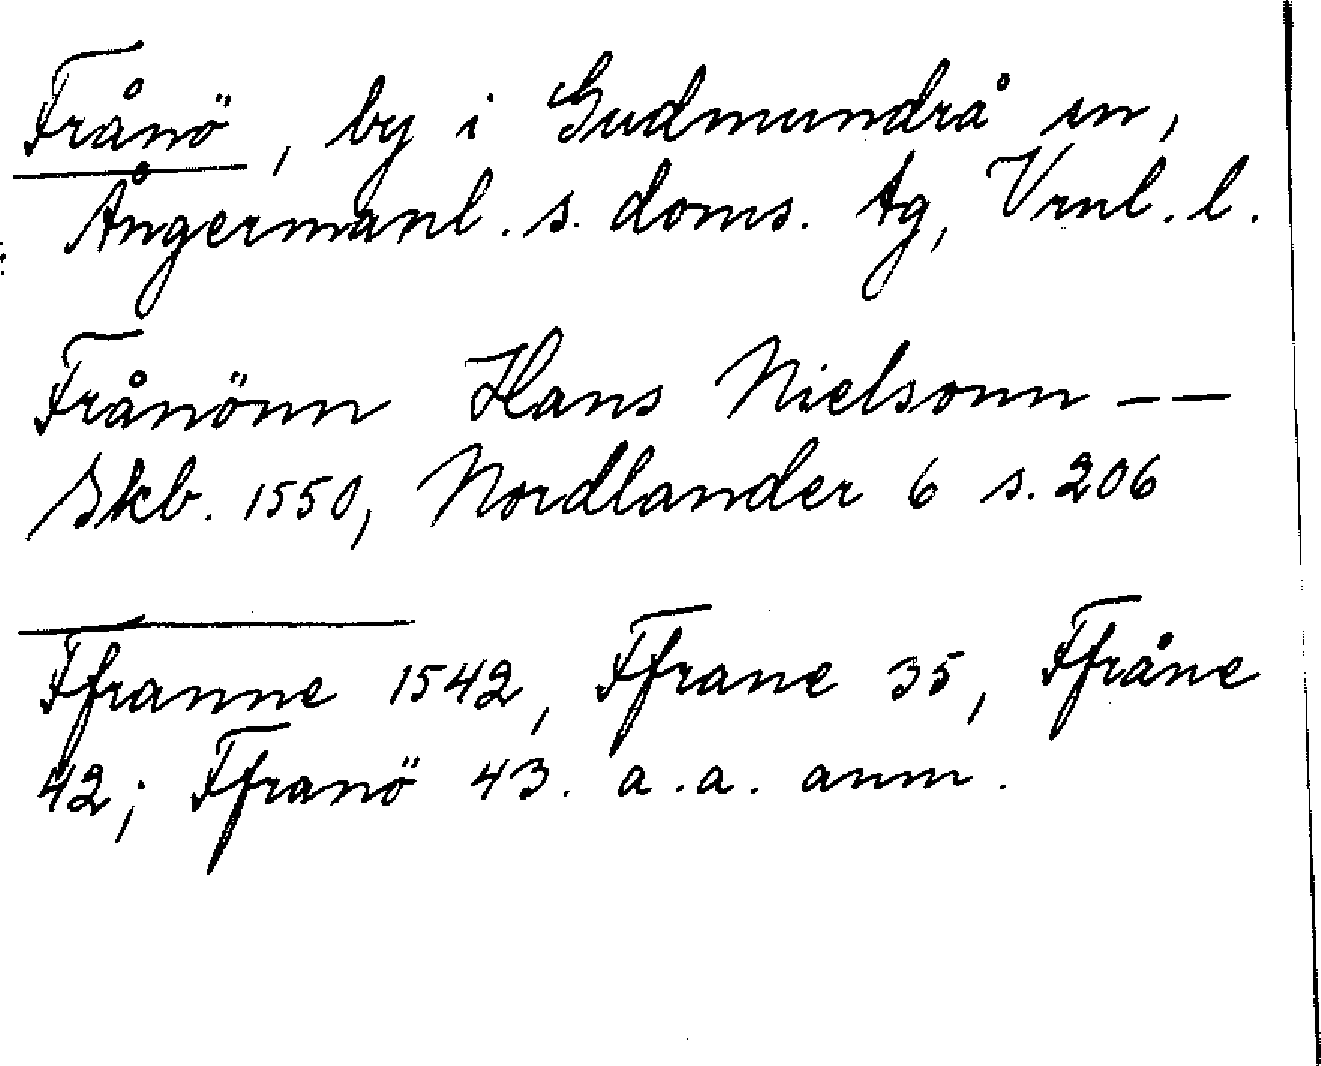 Frånö, by i Gudmundrå sn,
Ångermanl. s. doms. tg, Vrnl. l.
Frånönn Hans Nielsonn — —
Skb. 1550, Nordlander 6 s. 206
Ffranne 1542, Ffrane 35, Ffråne
42; Ffranö 43. a.a. anm.